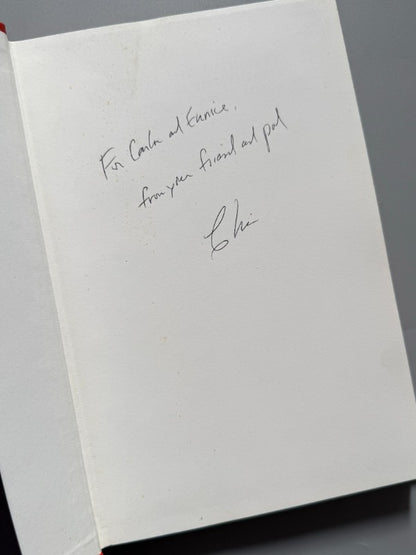 For Carlos and Eunice,
from your friend and pal
Chris